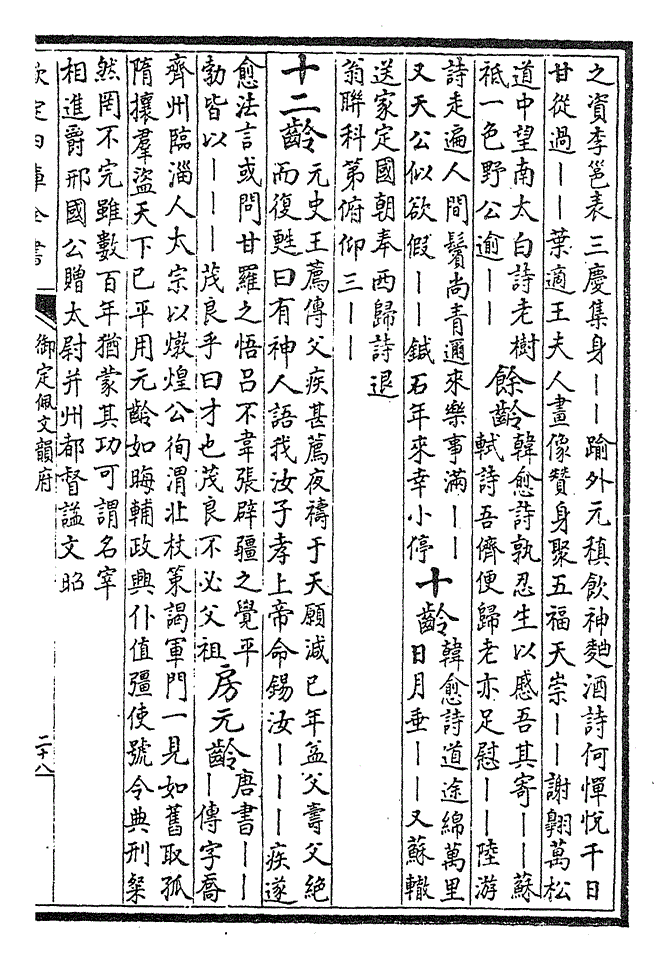 之資李邕表三慶集身丨丨踰外元稹飲神麯酒詩何憚悅千日
甘從過丨丨葉適王夫人畫像贊身聚五福天崇丨丨謝翺萬松
道中望南太白詩老樹
祇一色野公逾丨丨
餘齡
韓愈詩孰忍生以慼吾其寄丨丨蘇
軾詩吾儕便歸老亦足慰丨丨陸游
詩走遍人間鬢尚青邇來樂事滿丨丨
又天公似欲假丨丨鍼石年來幸小停
十齡
韓愈詩道途綿萬里
日月垂丨丨又蘇轍
送家定國朝奉西歸詩退
翁聯科第俯仰三丨丨
十二齡
元史王薦傳父疾甚薦夜禱于天願減已年益父壽父絶
而復甦曰有神人語我汝子孝上帝命錫汝丨丨丨疾遂
愈法言或問甘羅之悟呂不韋張辟疆之覺平
勃皆以丨丨丨茂良乎曰才也茂良不必父祖
房元齡
唐書丨丨
丨傳字喬
齊州臨淄人太宗以燉煌公徇渭北杖策謁軍門一見如舊取孤
隋攘羣盜天下已平用元齡如晦輔政興仆值彊使號令典刑粲
然罔不完雖數百年猶蒙其功可謂名宰
相進爵邢國公贈太尉并州都督諡文昭
欽定四庫全書
御定佩文韻府
二十八